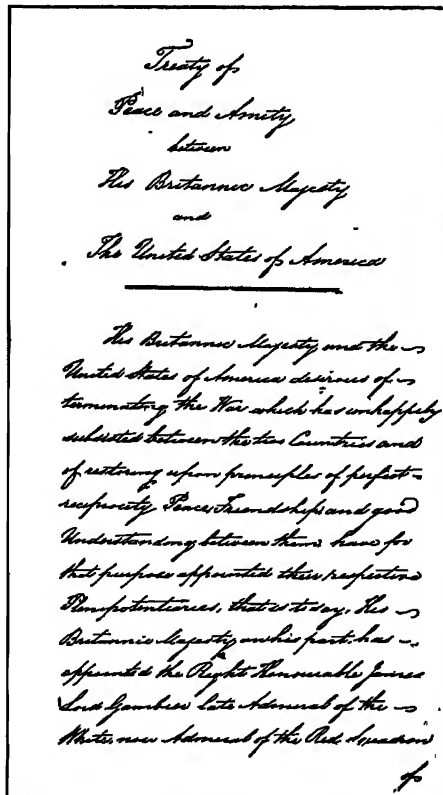 Treaty of
Peace and Amity
between
His Britannic Majesty
and
The United States of America
His Britannic Majesty and the
United States of America desirous of
terminating the War which has unhappily
subsisted between the two Countries and
of restoring upon principles of perfect
reciprocity Peace, Friendship, and good
Understanding between them, have for
that purpose appointed their respective
Plenipotentiaries, that is to say, His
Britannic Majesty on his part has
appointed the Right Honourable James
Lord Gambier late Admiral of the
White, now Admiral of the Red Squadron
of